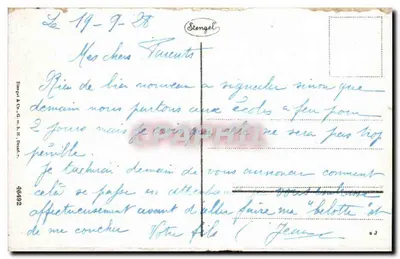 Le 19-9-28
Stengel
Mes chers Parents
Rien de bien nouveau a signaler sinon que
demain nous partons aux écoles a feu pour
2 jours mais je crois que ce ne sera pas trop
pénible.
Je tacherai demain de vous annoncer comment
celà se passe en attendant vous embrasse
affectueusement avant d'aller faire ma "belotte" et
de me coucher Votre fils Jean
Stengel & Co., G.m.b.H., Dresden
46492